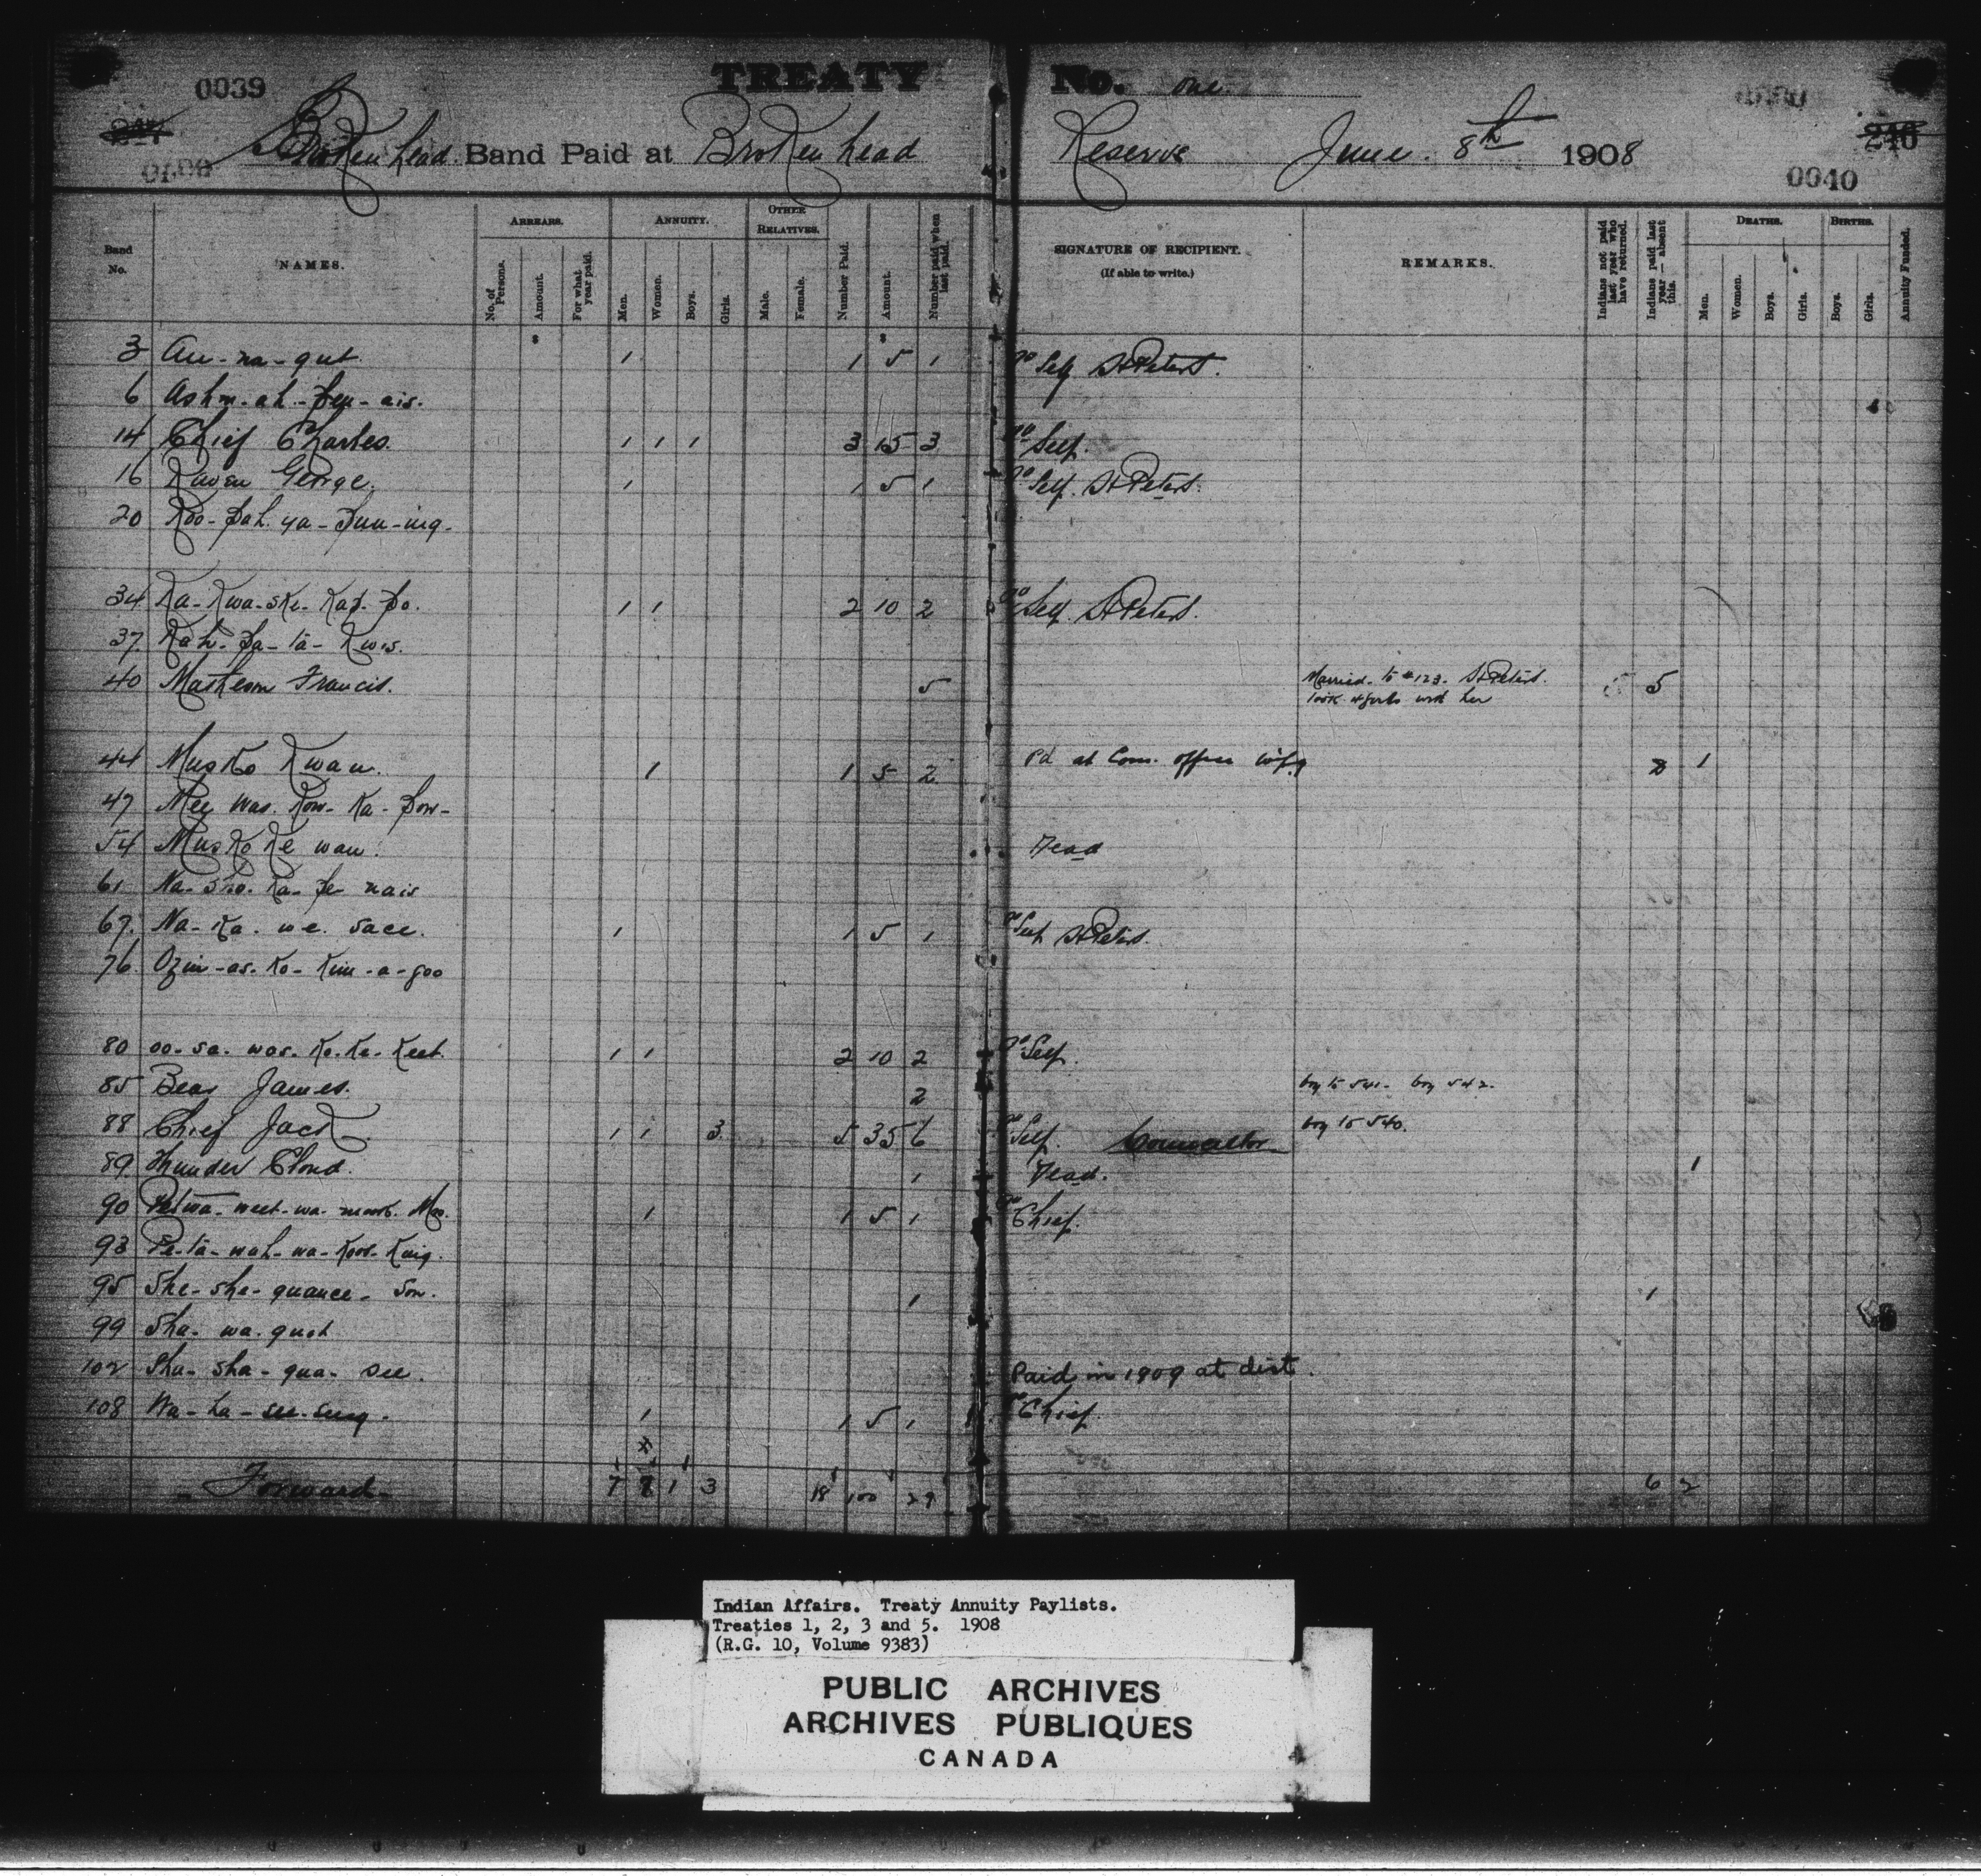 0039 TREATY No. one
247 240
0040
Broken head Band Paid at Broken head Reserve June 8th 1908
0040
Band No. NAMES. ARREARS. No. of Persons. Amount. For what year paid. ANNUITY. Men. Women. Boys. Girls. OTHER RELATIVES. Male. Female. Number Paid. Amount. Number paid when last paid. SIGNATURE OF RECIPIENT. (If able to write.) REMARKS. Indians not paid last year who have returned. Indians paid last year — absent this. DEATHS. Men. Women. Boys. Girls. BIRTHS. Boys. Girls. Annuity Funded.
$ $
3 Au-na-qut. 1 1 5 1 Self St Peters.
6 Ashm-ah-pen-ais.
14 Chief Charles. 1 1 1 3 15 3 Self.
16 Raven George. 1 1 5 1 Self. St Peters.
20 Koo-pah-ya-pun-ing-
34 Ka-Kwa-ske-Kap-po. 1 1 2 10 2 Self. St Peters.
37 Kah-pa-ta-Kwis.
40 Francis. 5 Married to #123. St Peters. 5
took 4 girls with her
44 Musko Kwan. 1 1 5 2 Pd at Com. office Wpg 2 1
47 Mee was. Kow-Ka-pow-
54 Musko Ke wan. Dead
61 Na-sho-Ka-pe nais
67. Na-Ka-we-sace. 1 1 5 1 Self St Peters.
76 Ozin-as-Ko-Kim-a-goo
80 oo-sa-was-Ko-Ke-Keet. 1 1 2 10 2 Self.
85 Bear James. 2 boy to 541. boy 542.
88 Chief Jack 1 1 3 5 35 6 Self. Councillor boy to 540.
89 Thunder Cloud. 1 Dead. 1
90 Mrs. 1 1 5 1 Chief.
93 Pe-ta-wah-wa-Koos-Kuig.
95 She-she-quance-Son. 1 1
99 Sha-wa-quot
102 Sha-sha-qua-see. Paid in 1909 at dist.
108 Wa-ha-see-sung. 1 1 5 1 Chief.
Forward 7 1 3 18 100 29 6 2
Indian Affairs. Treaty Annuity Paylists.
Treaties 1, 2, 3 and 5. 1908
(R.G. 10, Volume 9383)
PUBLIC ARCHIVES
ARCHIVES PUBLIQUES
CANADA